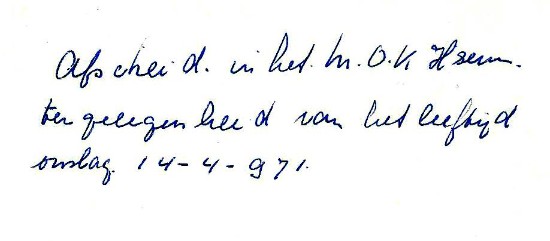 Afscheid. in het. M.O.K Heem.
ter gelegenheid van het leeftijd
onslag. 14-4-971.